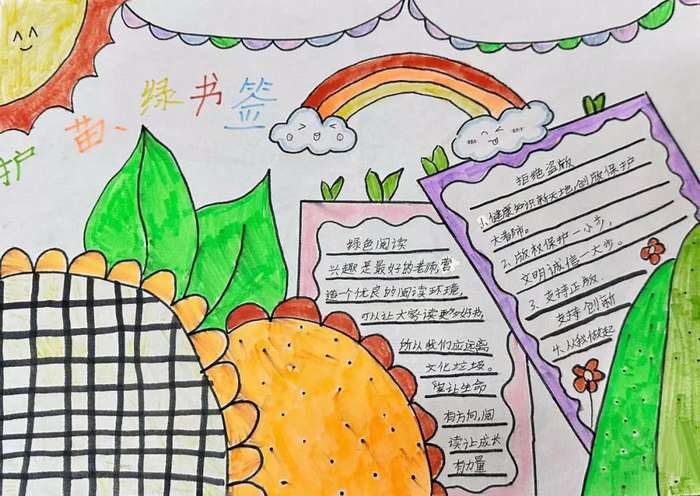 护苗、绿书签
绿色阅读
兴趣是最好的老师,营
造一个优良的阅读环境,
可以让大家读更多好书
所以我们应远离
文化垃圾。
坚让生命
有方向,阅
读让成长
有力量
拒绝盗版
1.健康知识新天地,创版保护
大老师。
2.版权保护一小步,
文明诚信一大步。
3.支持正版
支持创新
4.从我做起